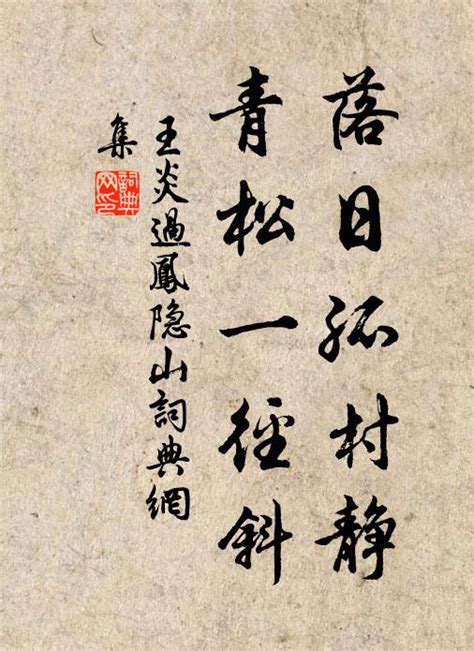 落日孤村静
青松一徑斜
王炎過鳳隐山詞典網
集
詞典
网印